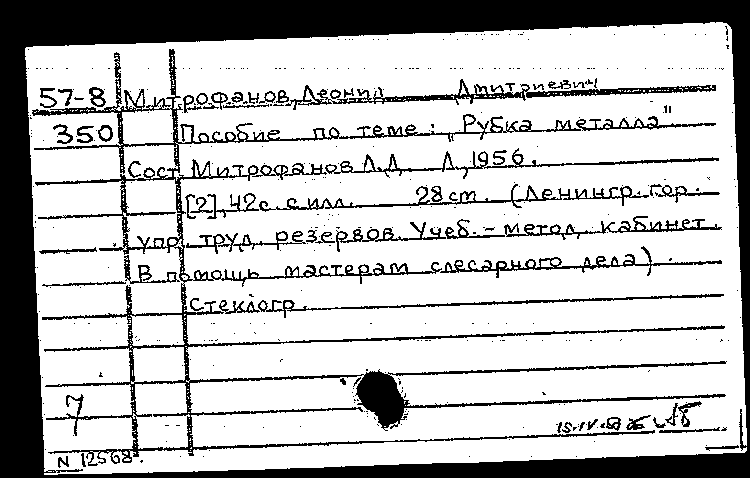 57-8 Митрофанов, Леонид Дмитриевич
350 Пособие по теме: „Рубка металла"
Сост. Митрофанов Л.Д. Л., 1956.
[2], 42с. с илл. 28cm. (Ленингр. гор.
упр. труд. резервов. Учеб.-метод. кабинет.
В помощь мастерам слесарного дела).
Стеклогр.
7
15.IV.
N 12568.